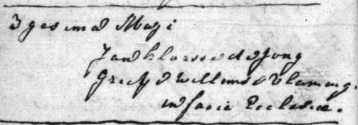 3 gas in ad Maji
Jan Klaasse de Jong
Grietje Willems Vlaming.
in facie Ecclesiæ.